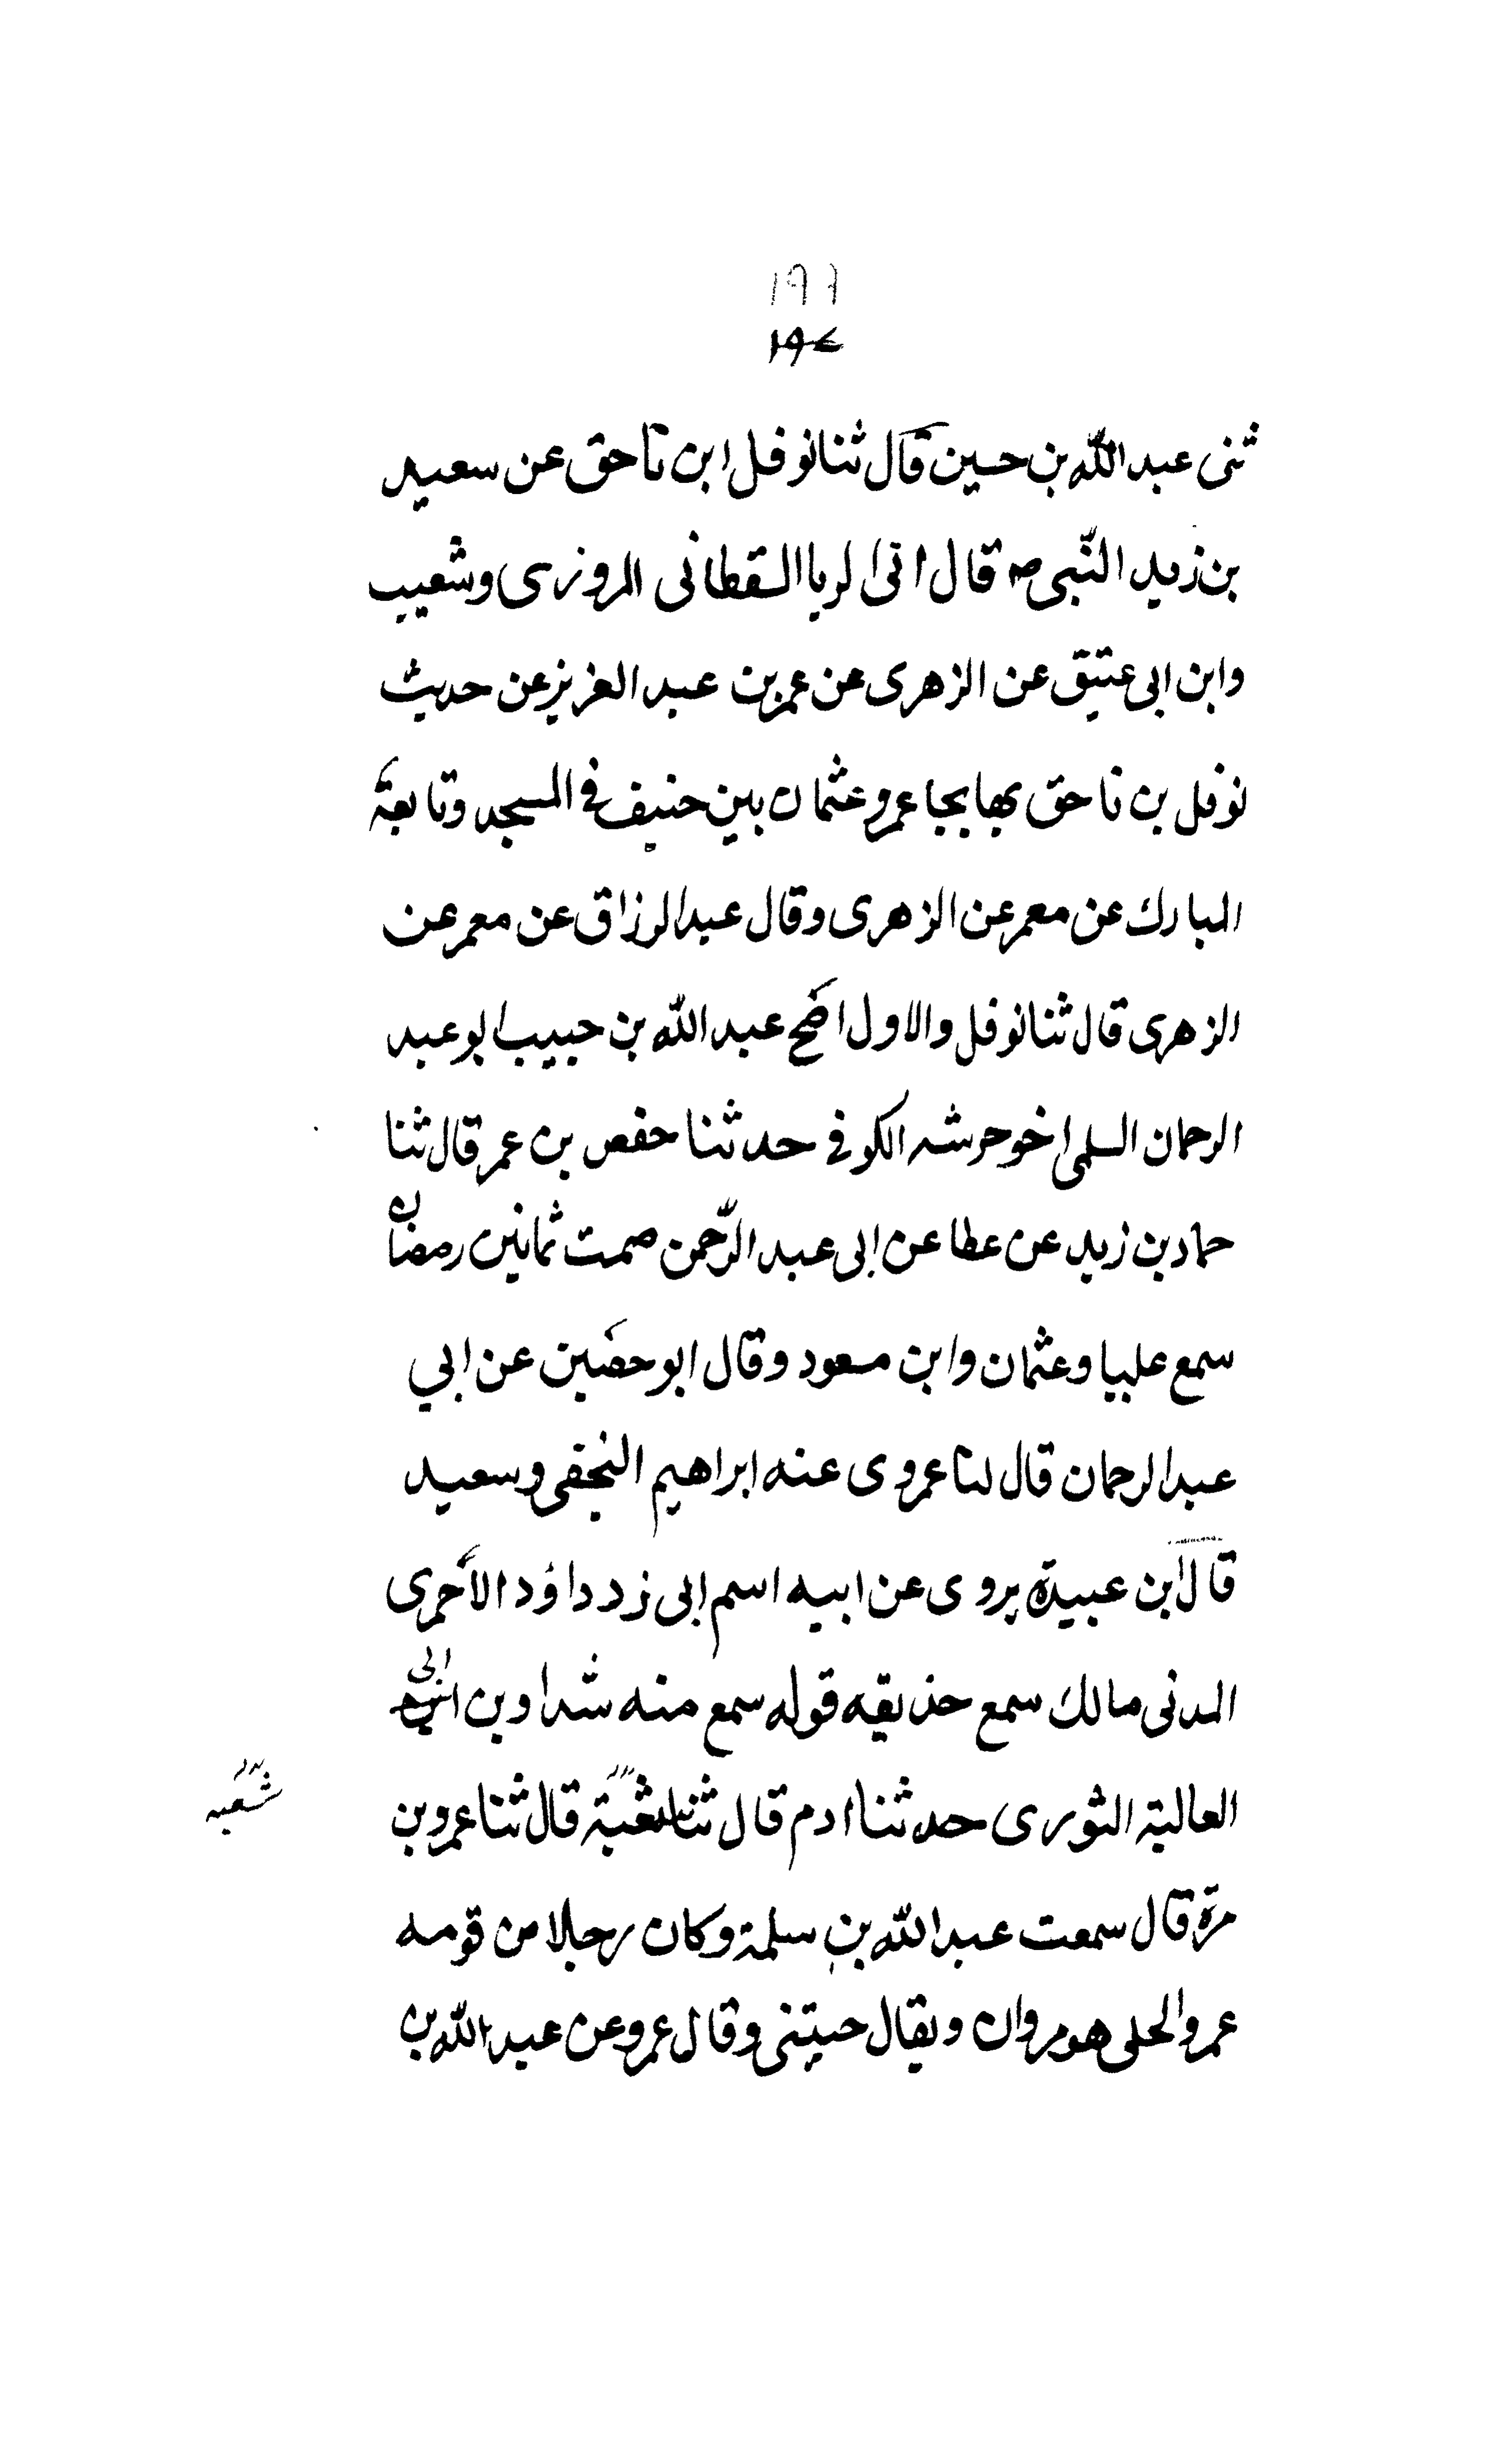 ١٩٦
١٩٧
ثنى عبد الله بن حسين قال ثنا نوفل ابن ناحق عن سعيد
بن زيد النبى صہ قال اتى الربا القطانى المروزى وشعيب
وابن ابى عتيق عن الزهرى عن عمر بن عبد العزيز عن حديث
نوفل بن ناحق بها بجا عمرو عثمان بين حنيف فى المسجد وتابعة
المبارك عن معمر عن الزهرى وقال عبد الرزاق عن معمر عن
الزهرى قال ثنا نوفل والاول اضح عبد الله بن حبيب ابو عبد
الرحمان السلمى اخو حرشه الكوفى حدثنا حفص بن عمر قال ثنا
حماد بن زيد عن عطا عن ابى عبد الرّحمن صمت ثمانين رمضان
سمع عليا وعثمان وابن مسعود وقال ابو حضين عن ابي
عبد الرحمان قال لنا عمروى عنه ابراهيم النجفى وسعيد
قال ابن عبيدة يروى عن ابيه اسم ابى زد داؤد الأحمرى
المدنى مالك سمع حذيقه قوله سمع منه شداو بن ابى
العالية الثورى حدثنا ادم قال ثنا شعبة قال ثنا عمرو بن
شعبه
مرة قال سمعت عبد الله بن سلمة وكان رجلا من قومه
عمر والحلى هو مروان ويقال حيتنى وقال عمرو عن عبد الله بن